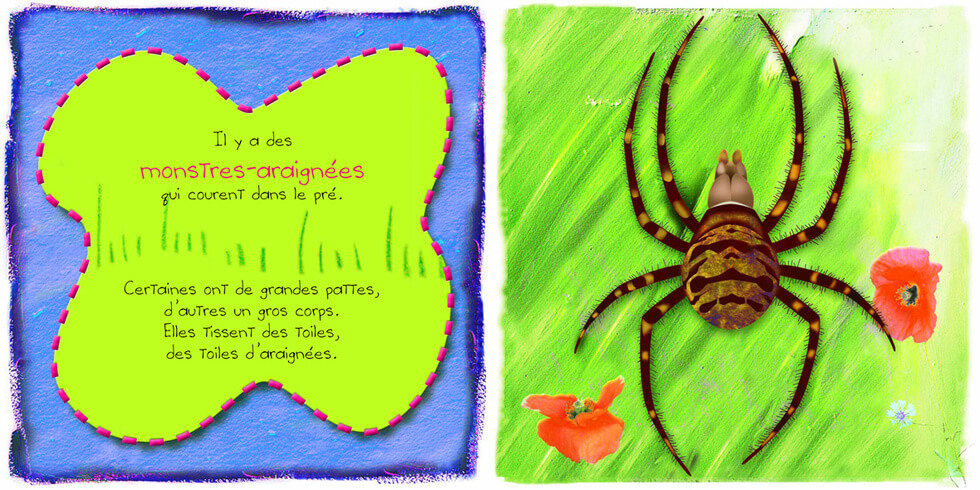 Il y a des
monstres-araignées
qui courent dans le pré.
Certaines ont de grandes pattes,
d'autres un gros corps.
Elles tissent des toiles,
des toiles d'araignées.